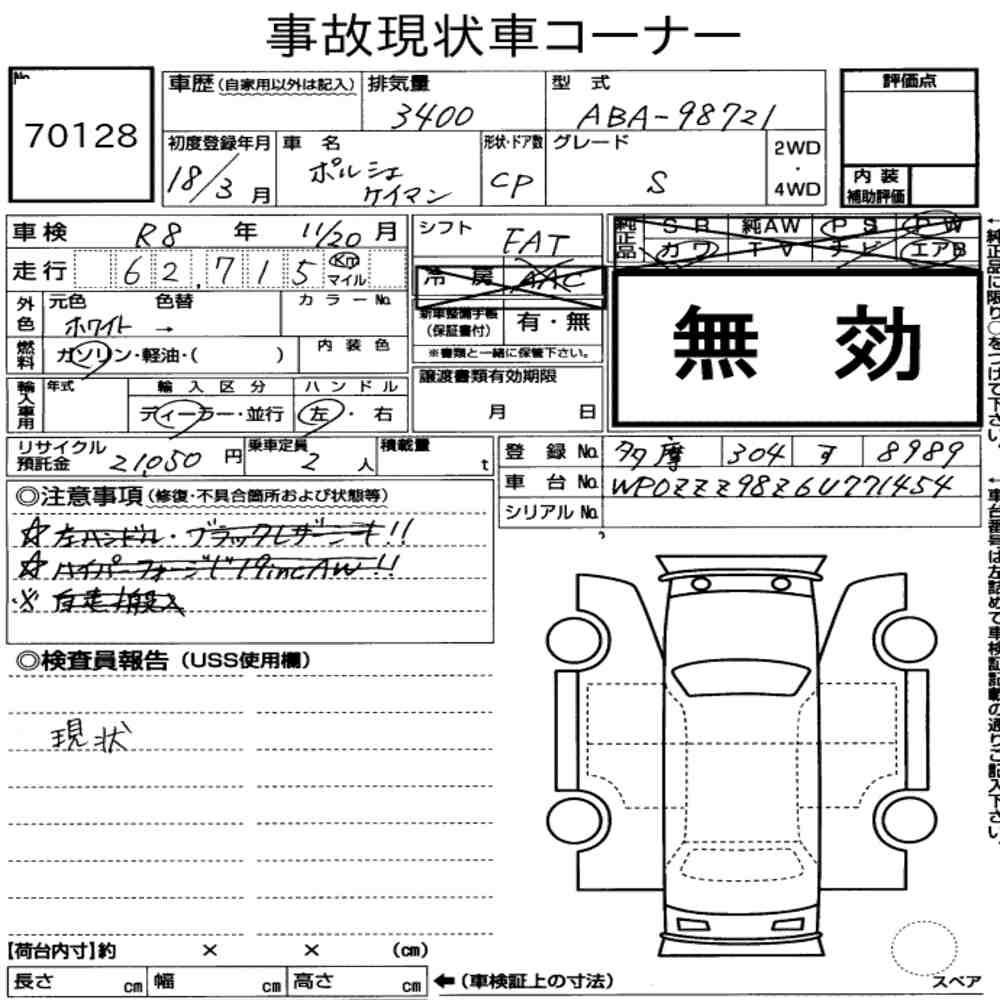 事故現状車コーナー
No.
70128
車歴(自家用以外は記入)
排気量
3400
型式
ABA-98721
評価点
初度登録年月
18/3月
車名
ポルシェ
ケイマン
形状・ドア数
CP
グレード
S
2WD
・
4WD
内装
補助評価
車検 R8年 11/20月
走行 62,715 Km マイル
シフト
FAT
純正品
SR 純AW PS PW
カワ TV ナビ エアB
冷房 AAC
外色
元色 色替
ホワイト →
カラーNo.
新車整備手帳
(保証書付)
有・無
※書類と一緒に保管下さい。
無効
燃料
ガソリン・軽油・( )
内装色
輸入車用
年式
輸入区分
ディーラー・並行
ハンドル
左・右
譲渡書類有効期限
月 日
リサイクル
預託金 21,050円
乗車定員
2人
積載量
t
登録No. 多摩 304 す 8989
車台No. WP0ZZZ98Z6U771454
シリアルNo.
◎注意事項(修復・不具合箇所および状態等)
☆左ハンドル・ブラックレザーシート!!
☆ハイパーフォージド19incAW!!
※自走搬入
◎検査員報告(USS使用欄)
現状
【荷台内寸】約 × × (cm)
長さ cm 幅 cm 高さ cm
←(車検証上の寸法)
スペア
←純正品に限り○をつけて下さい。
←車台番号は左詰めで車検証記載の通りご記入下さい。